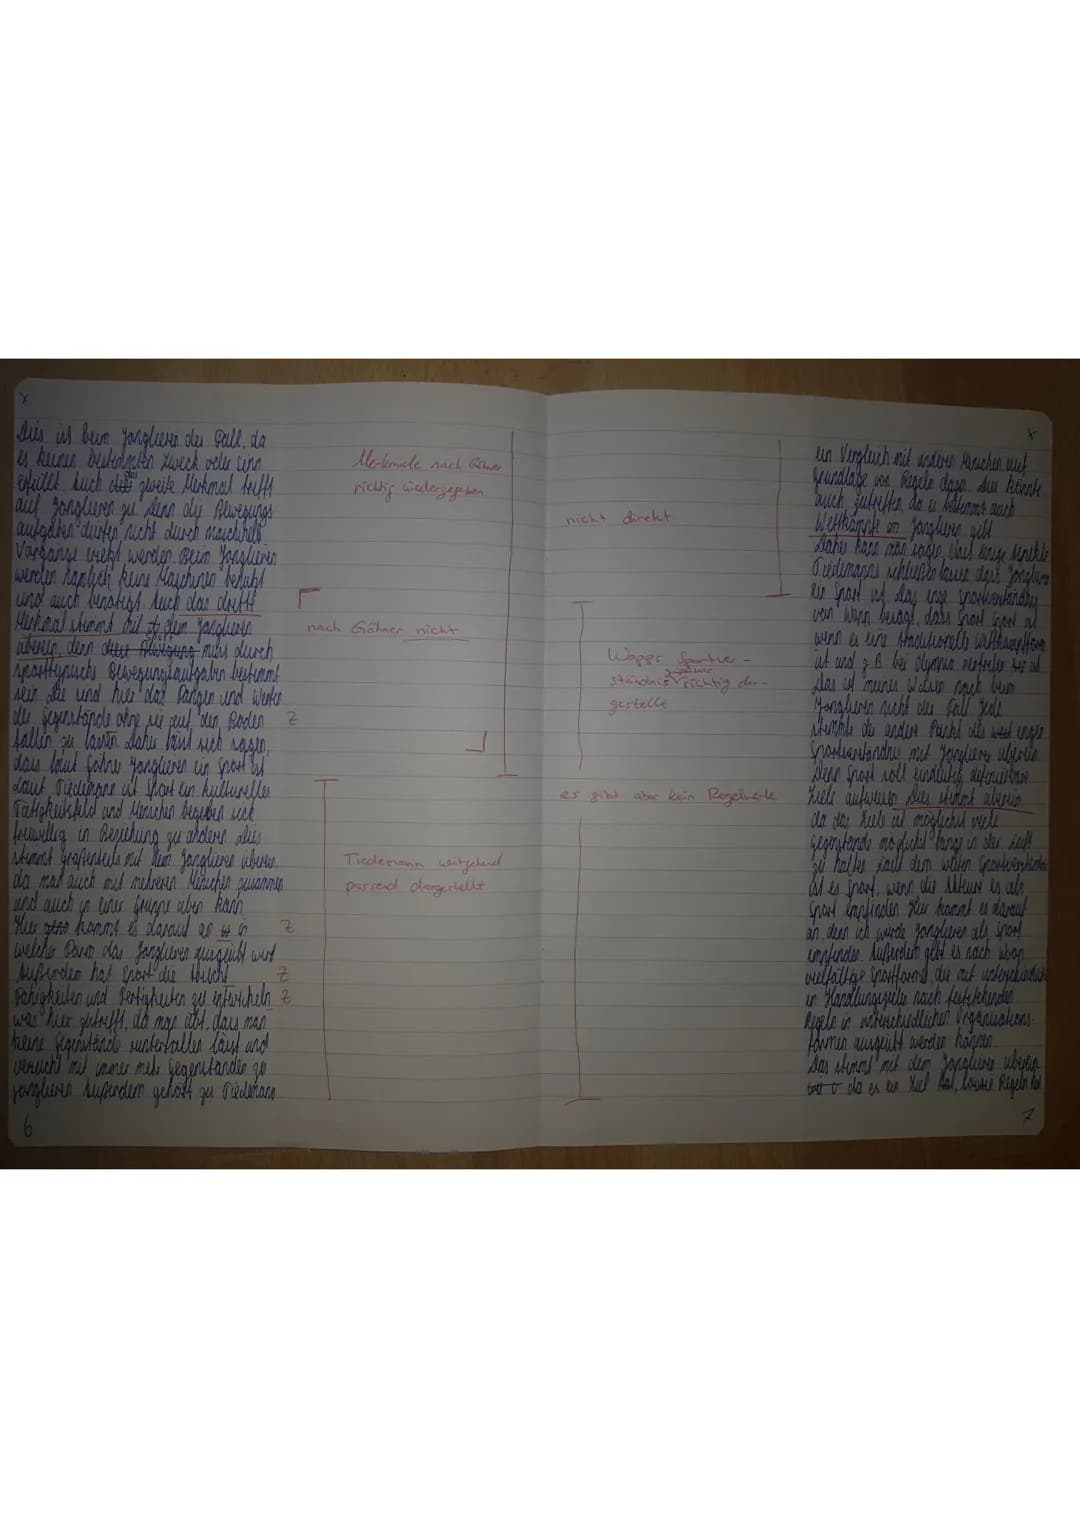 x
Dies ist beim Jonglieren der Fall, da
es keinen bestimmten Zweck oder Sinn
erfüllt. Auch das zweite Merkmal trifft
auf Jonglieren zu, denn die Bewegungs-
aufgaben dürfen nicht durch maschinelle
Vorgänge ersetzt werden. Beim Jonglieren
werden nämlich keine Maschinen benutzt
und auch benötigt. Auch das dritte
Merkmal stimmt mit dem Jonglieren
überein, denn diese Bewegung muss durch
sporttypische Bewegungsaufgaben bestimmt
sein. Die sind hier das Fangen und Werfen
der Gegenstände ohne sie auf den Boden
fallen zu lassen. Daher lässt sich sagen,
dass laut Göhner Jonglieren ein Sport ist.
Laut Tiedemann ist Sport ein kulturelles
Tätigkeitsfeld und Menschen begeben sich
freiwillig in Beziehung zu anderen. Dies
stimmt größtenteils mit dem Jonglieren überein,
da man auch mit mehreren Menschen zusammen
und auch in einer Gruppe üben kann.
Hier kommt es darauf an in
welcher Form das Jonglieren ausgeübt wird.
Außerdem hat Sport die Absicht
Fähigkeiten und Fertigkeiten zu entwickeln
was hier zutrifft, da man übt, dass man
keine Gegenstände runterfallen lässt und
versucht mit immer mehr Gegenständen zu
jonglieren. Außerdem gehört zu Tiedemann
6
Merkmale nach Göhner
richtig wiedergegeben
nach Göhner nicht
Z
Tiedemann weitgehend
passend dargestellt
Z
Z
Z
x
nicht direkt
Wopps Sportver-
ständnis später richtig dar-
gestellt
es gibt aber kein Regelwerk
ein Vergleich mit anderen Menschen auf
Grundlage von Regeln dazu. Dies könnte
auch zutreffen, da es bestimmt auch
Wettkämpfe im Jonglieren gibt.
Daher kann man sagen, dass einige Aspekte
Tiedemanns schließen lassen, dass Jonglieren
ein Sport ist. Das enge Sportverständnis
von Wopp besagt, dass Sport Sport ist
wenn es eine traditionelle Wettkampfform
ist und z.B. bei Olympia vertreten ist.
Das ist meines Wissens nach beim
Jonglieren nicht der Fall. Jede
stimmte der andere Punkt des engen
Sportverständnis mit Jonglieren überein.
Denn Sport soll eindeutig definierbare
Ziele aufweisen. Dies stimmt überein
da das Ziel ist möglichst viele
Gegenstände möglichst lange in der Luft
zu halten. Laut dem weiten Sportverständnis
ist es Sport, wenn die Akteure es als
Sport empfinden. Hier kommt es darauf
an, denn ich würde Jonglieren als Sport
empfinden. Außerdem gibt es nach Wopp
vielfältige Sportformen, die mit unterschiedlich
en Handlungszielen nach feststehenden
Regeln in unterschiedlichen Organisations-
formen ausgeübt werden können.
Das stimmt mit dem Jonglieren überein
da es ein Ziel hat, sowie Regeln hat
7